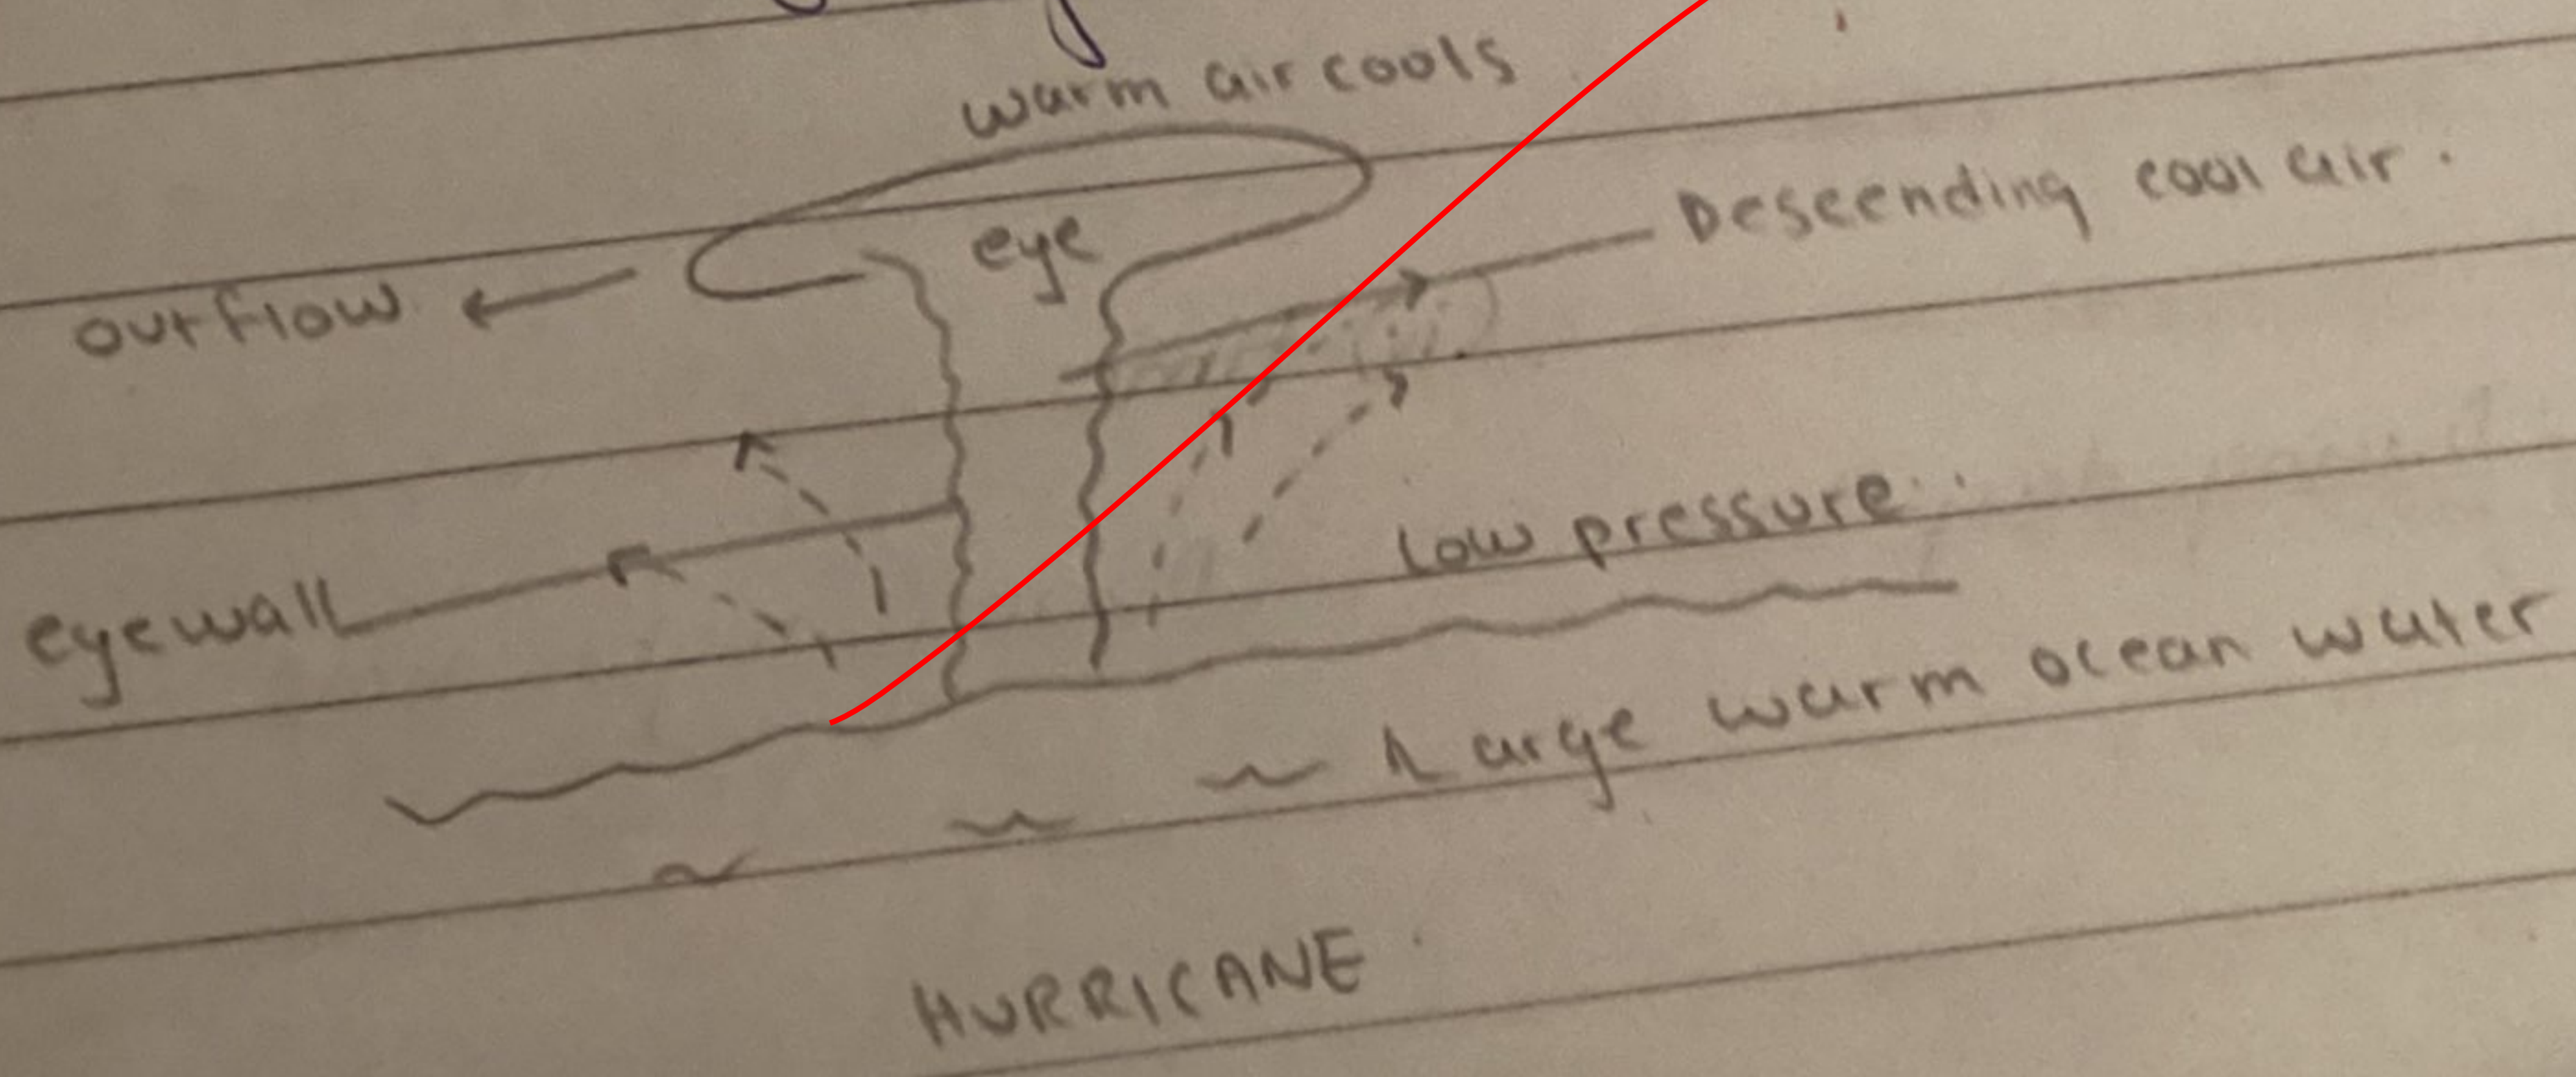 warm air cools
Descending cool air.
eye
outflow
low pressure
eyewall
Large warm ocean water
HURRICANE